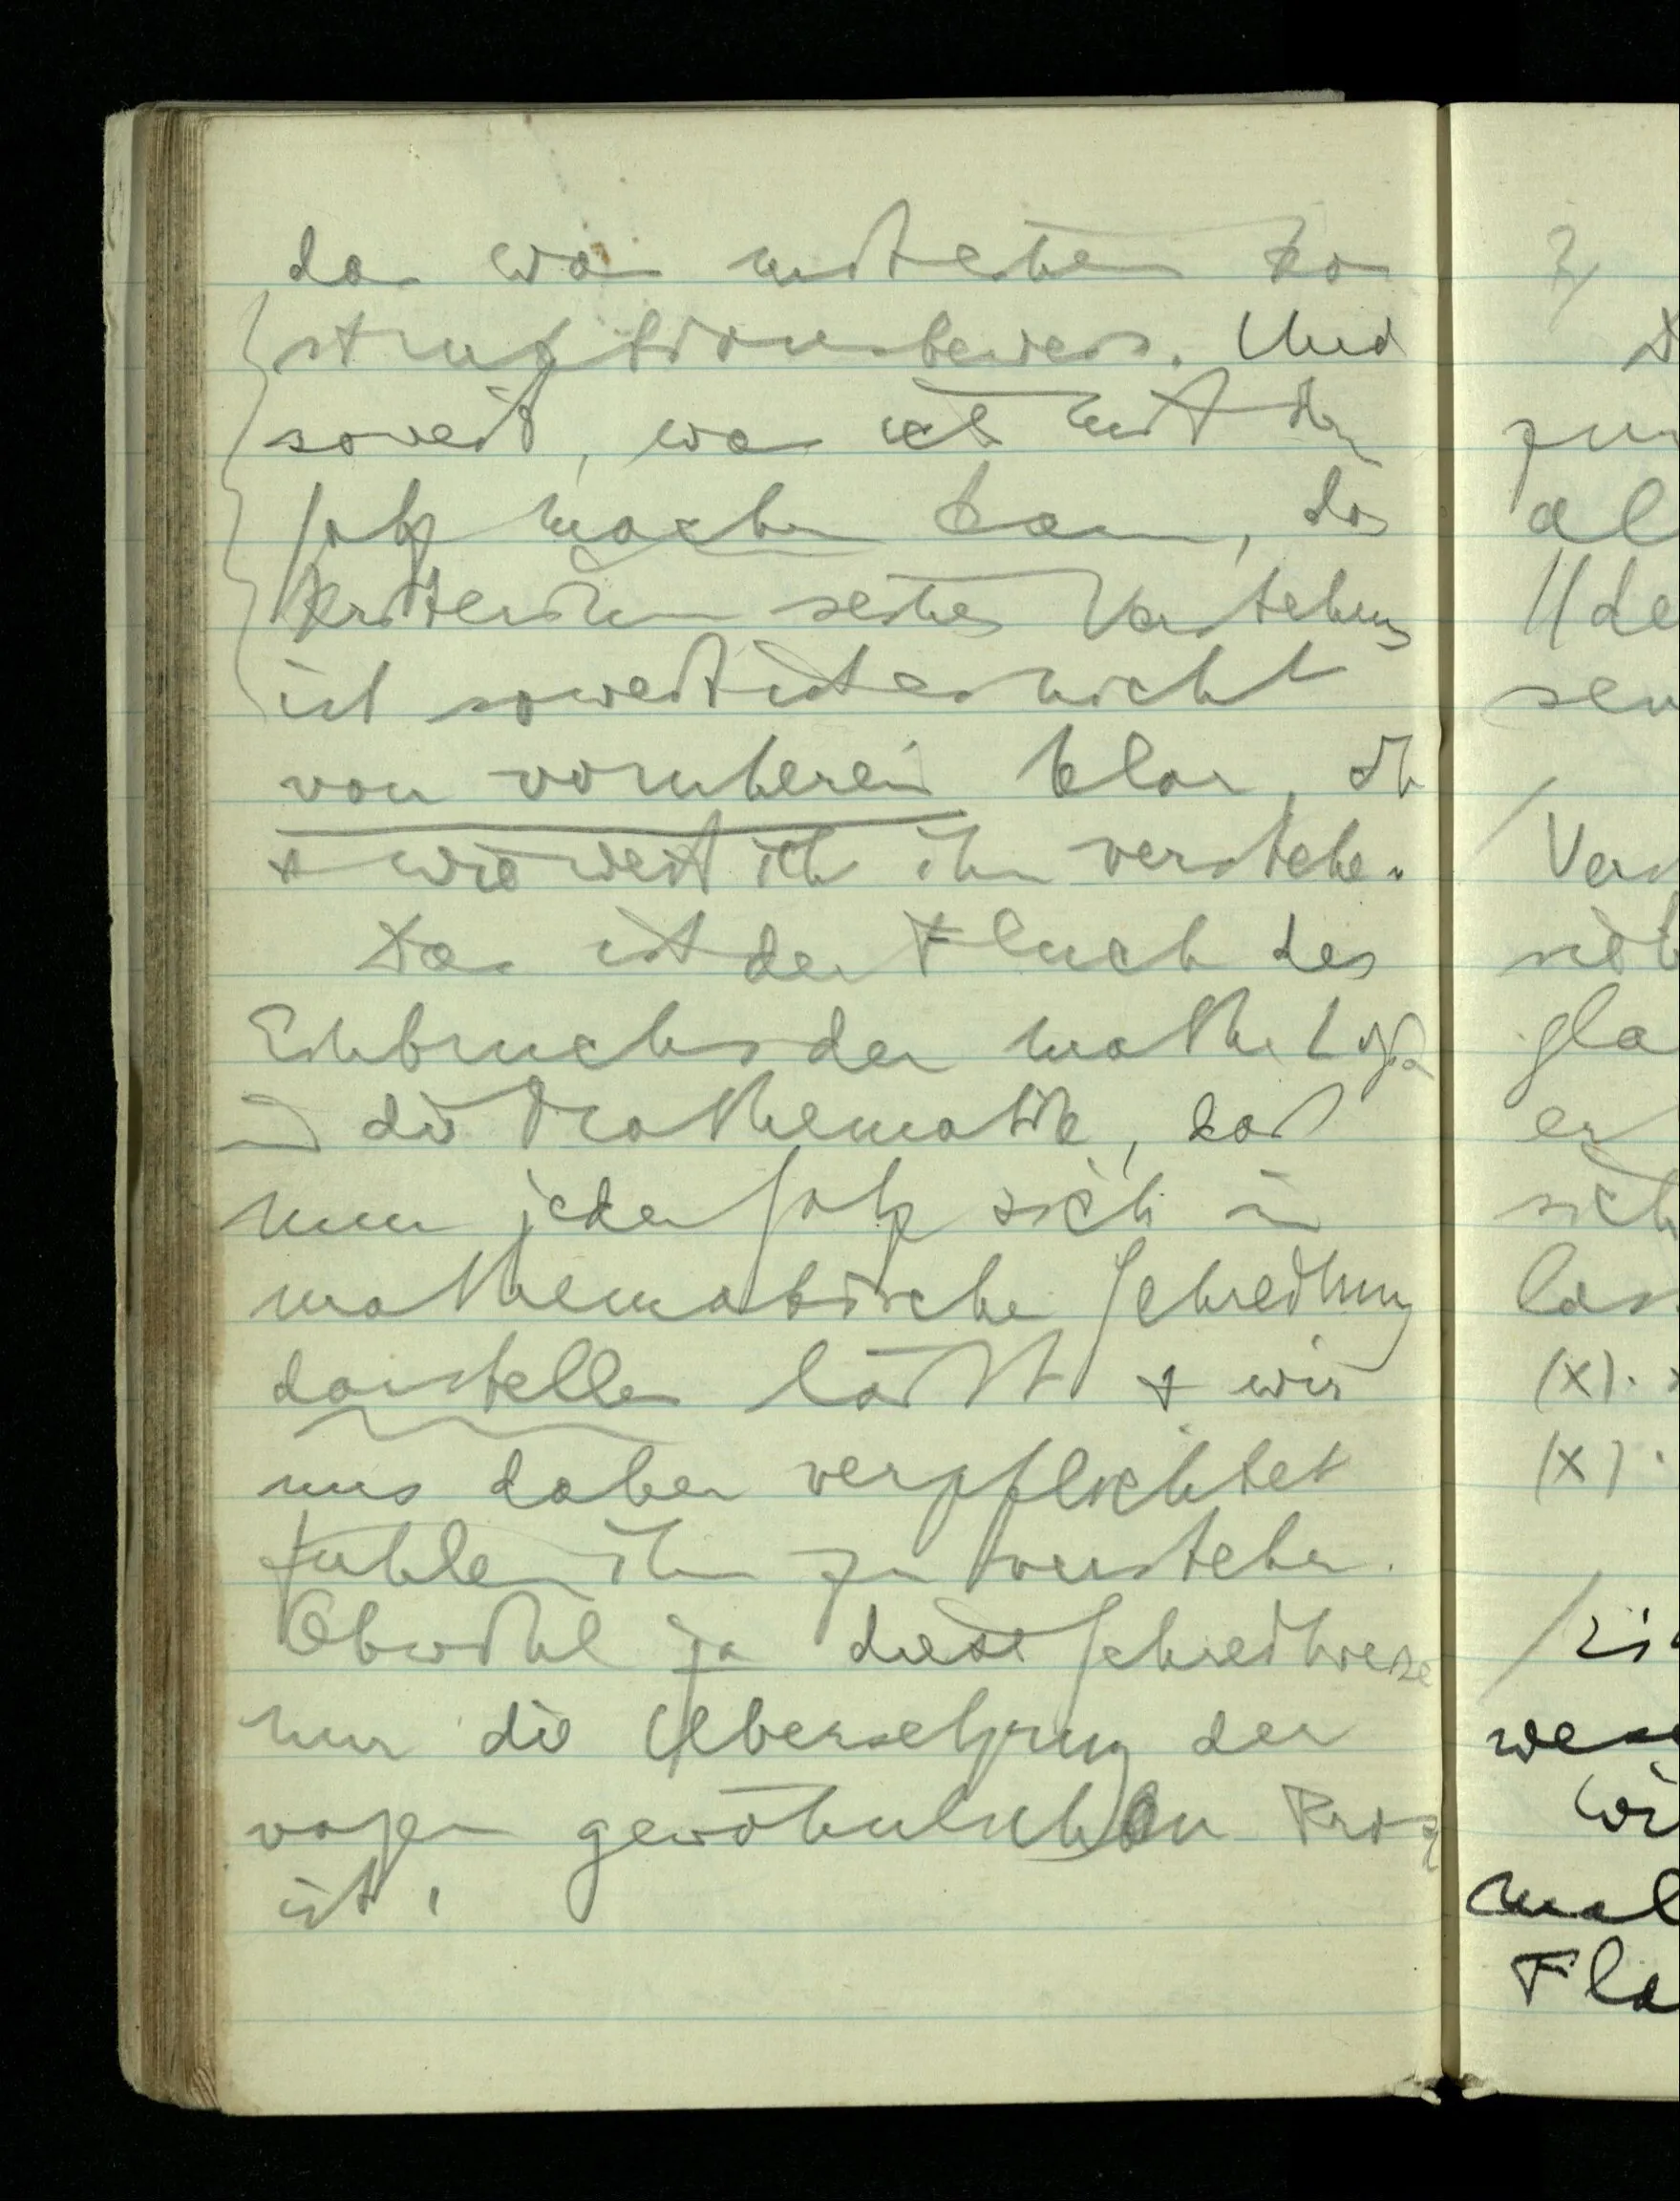 das was mit einem Kon
struktionsbeweis. Und
soweit, was ich mit dem
Satz machen kann, das
Kriterium seines Verstehens
ist soweit ist es nicht
von vornherein klar, ob
& wieweit ich ihn verstehe.
Das ist der Fluch des
Einbruchs der math. Logik
in die Mathematik, daß
nun jeder Satz sich in
mathematischer Schreibung
darstellen läßt & wir
uns daher verpflichtet
fühlen ihn zu verstehen.
Obwohl ja diese Schreibweise
nur die Übersetzung der
vagen gewöhnlichen Prosa
ist.